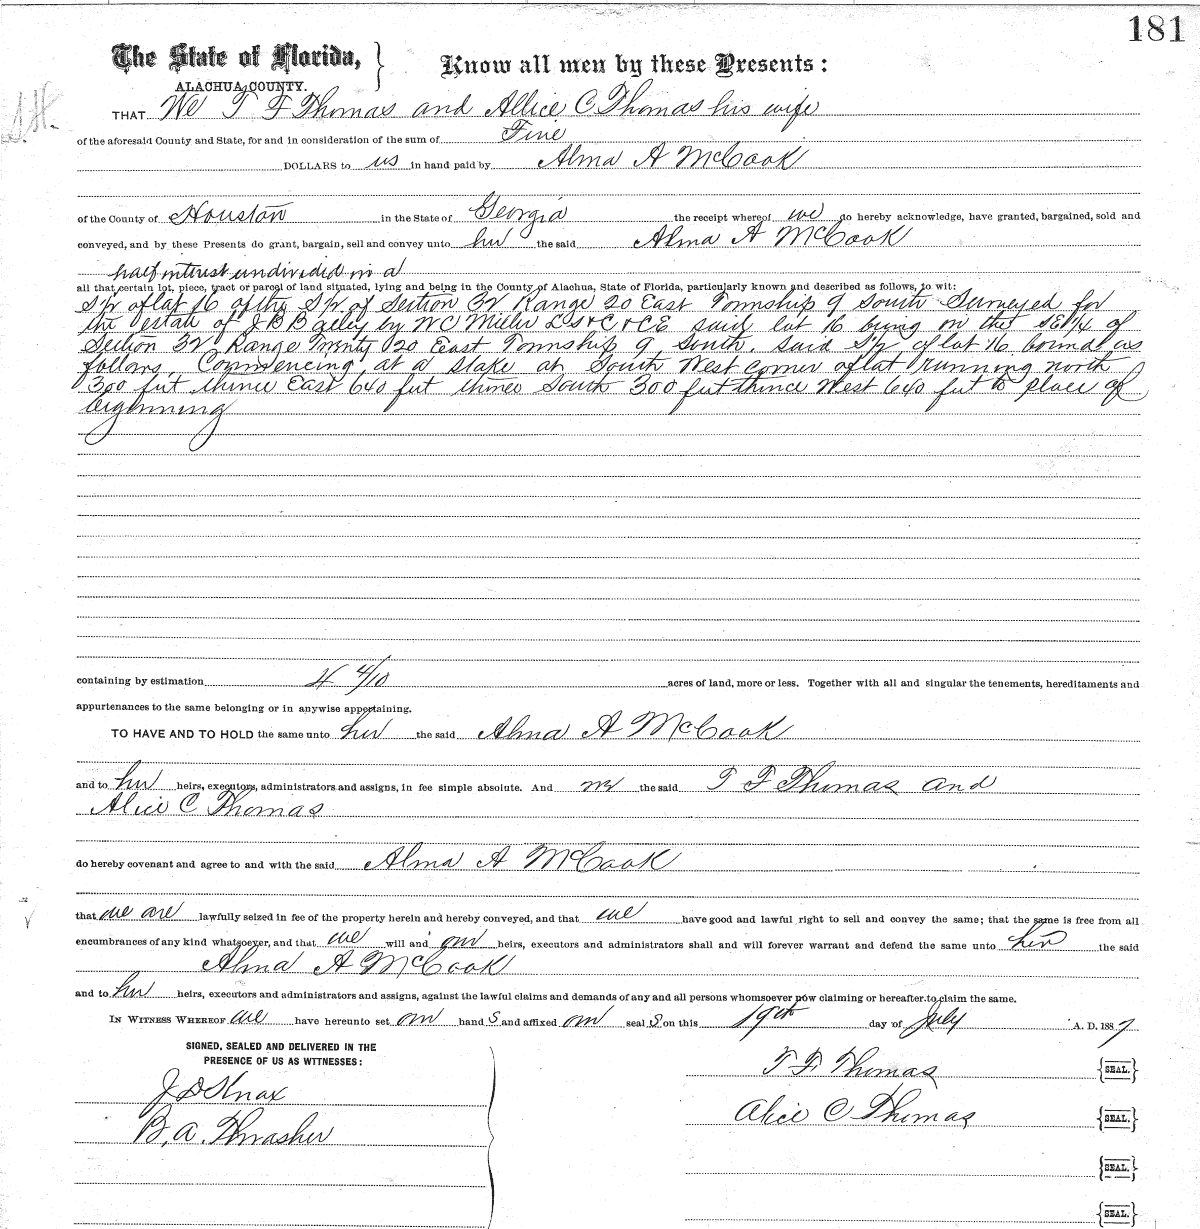 181
The State of Florida, } Know all men by these Presents:
ALACHUA COUNTY.
THAT We T F Thomas and Allice C Thomas his wife
of the aforesaid County and State, for and in consideration of the sum of Five
DOLLARS to us in hand paid by Alma A McCook
of the County of Houston in the State of Georgia the receipt whereof we do hereby acknowledge, have granted, bargained, sold and
conveyed, and by these Presents do grant, bargain, sell and convey unto her the said Alma A McCook
half interest undivided in a
all that certain lot, piece, tract or parcel of land situated, lying and being in the County of Alachua, State of Florida, particularly known and described as follows, to wit:
S½ of lot 16 of the S½ of Section 32 Range 20 East Township 9 South Surveyed for
the estate of J B Bailey by W C Miller L S & C & C E said lot 16 being in the SE¼ of
Section 32 Range Twenty 20 East Township 9 South. Said S½ of lot 16 bound as
follows, Commencing at a stake at South West corner of lot running north
300 feet thence East 640 feet thence South 300 feet thence West 640 feet to place of
beginning
containing by estimation 4 4/10 acres of land, more or less. Together with all and singular the tenements, hereditaments and
appurtenances to the same belonging or in anywise appertaining.
TO HAVE AND TO HOLD the same unto her the said Alma A McCook
and to her heirs, executors, administrators and assigns, in fee simple absolute. And we the said T F Thomas and
Alice C Thomas
do hereby covenant and agree to and with the said Alma A McCook
that we are lawfully seized in fee of the property herein and hereby conveyed, and that we have good and lawful right to sell and convey the same; that the same is free from all
encumbrances of any kind whatsoever, and that we will and our heirs, executors and administrators shall and will forever warrant and defend the same unto her the said
Alma A McCook
and to her heirs, executors and administrators and assigns, against the lawful claims and demands of any and all persons whomsoever now claiming or hereafter to claim the same.
IN WITNESS WHEREOF we have hereunto set our hand s and affixed our seal s on this 19th day of July A. D. 1887
SIGNED, SEALED AND DELIVERED IN THE
PRESENCE OF US AS WITNESSES:
T F Thomas {SEAL.}
J D Knox
Alice C Thomas {SEAL.}
B. A. Thrasher
{SEAL.}
{SEAL.}